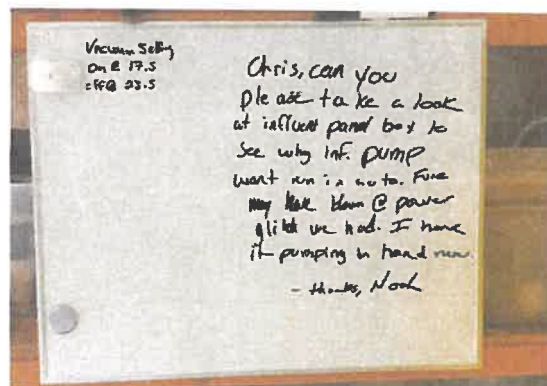 Vacuum Setting
On @ 17.5
off @ 23.5
Chris, can you
please take a look
at influent panel box to
see why inf. pump
wont run in auto. Fuse
may have blown @ power
glitch we had. I have
it pumping in hand now.
- thanks, Noah